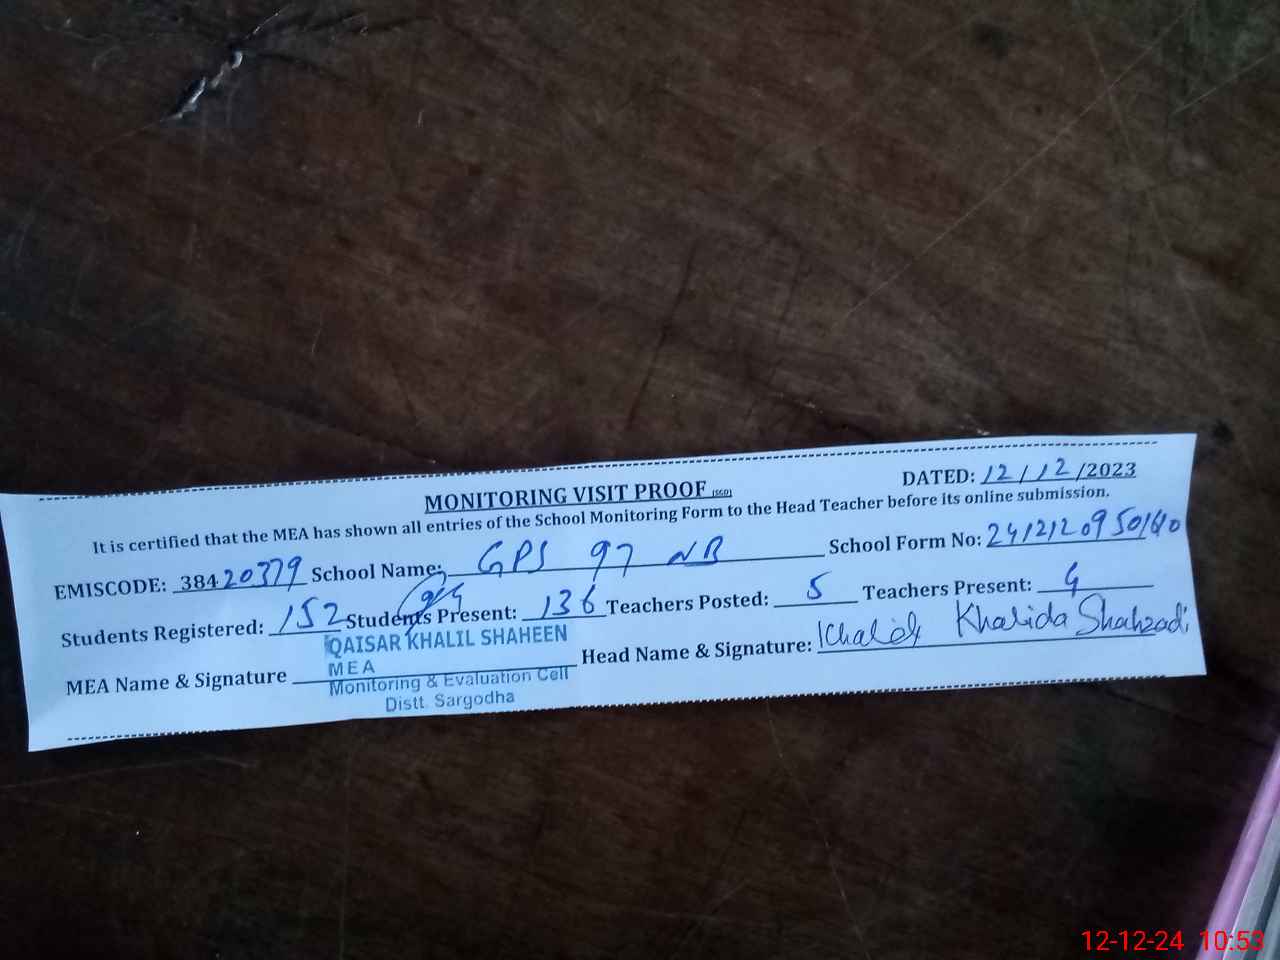 MONITORING VISIT PROOF (SGD)
DATED: 12/12/2023
It is certified that the MEA has shown all entries of the School Monitoring Form to the Head Teacher before its online submission.
EMISCODE: 38420379 School Name: GPS 97 NB School Form No:
Students Registered: 152 Students Present: 136 Teachers Posted: 5 Teachers Present: 4
MEA Name & Signature QAISAR KHALIL SHAHEEN Head Name & Signature: Khalida Khalida Shahzadi
MEA
Monitoring & Evaluation Cell
Distt. Sargodha
12-12-24 10:53